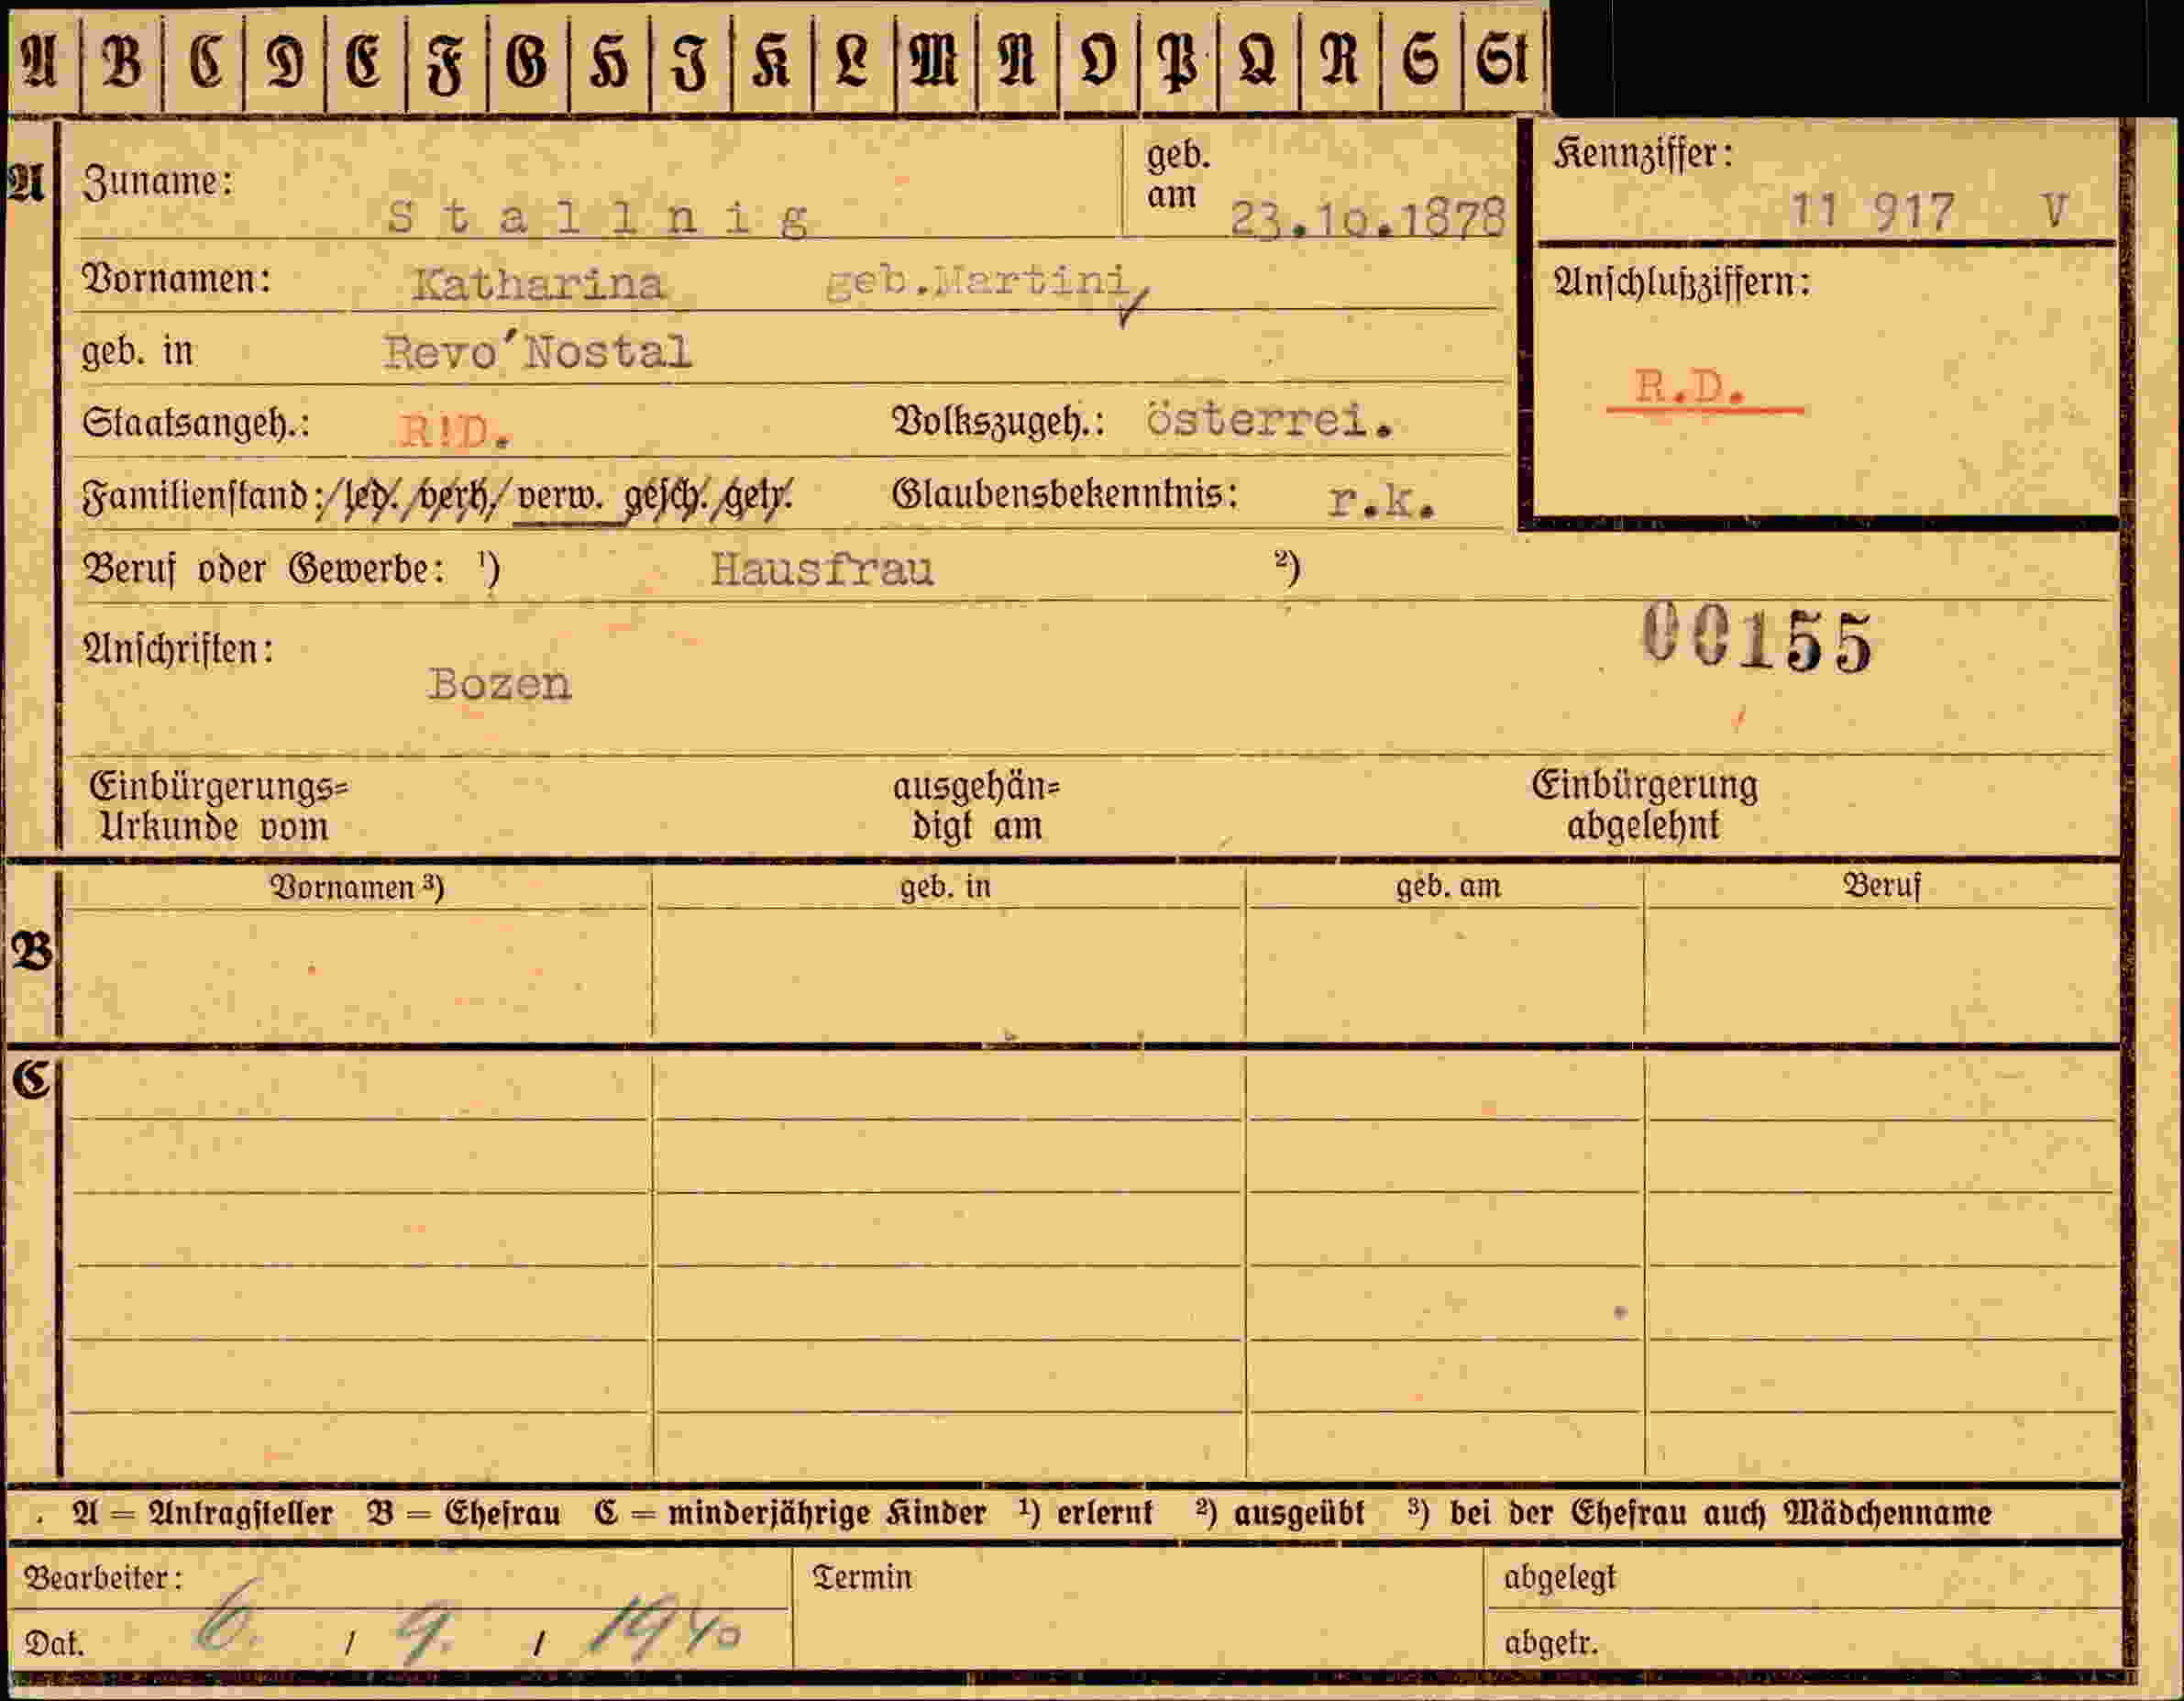 A B C D E F G H I K L M N O P Q R S St
A Zuname: Stallnig geb. am 23.10.1878
Kennziffer: 11 917 V
Vornamen: Katharina geb.Martini
Anschlußziffern:
geb. in Revo'Nostal
R.D.
Staatsangeh.: R!D. Volkszugeh.: österrei.
Familienstand: led. verh. verw. gesch. getr. Glaubensbekenntnis: r.k.
Beruf oder Gewerbe: ¹) Hausfrau ²)
00155
Anschriften:
Bozen
Einbürgerungs= ausgehän= Einbürgerung
Urkunde vom digt am abgelehnt
Vornamen ³) geb. in geb. am Beruf
B
C
A = Antragsteller B = Ehefrau C = minderjährige Kinder ¹) erlernt ²) ausgeübt ³) bei der Ehefrau auch Mädchenname
Bearbeiter: Termin abgelegt
Dat. 6. / 9. / 1940 abgetr.